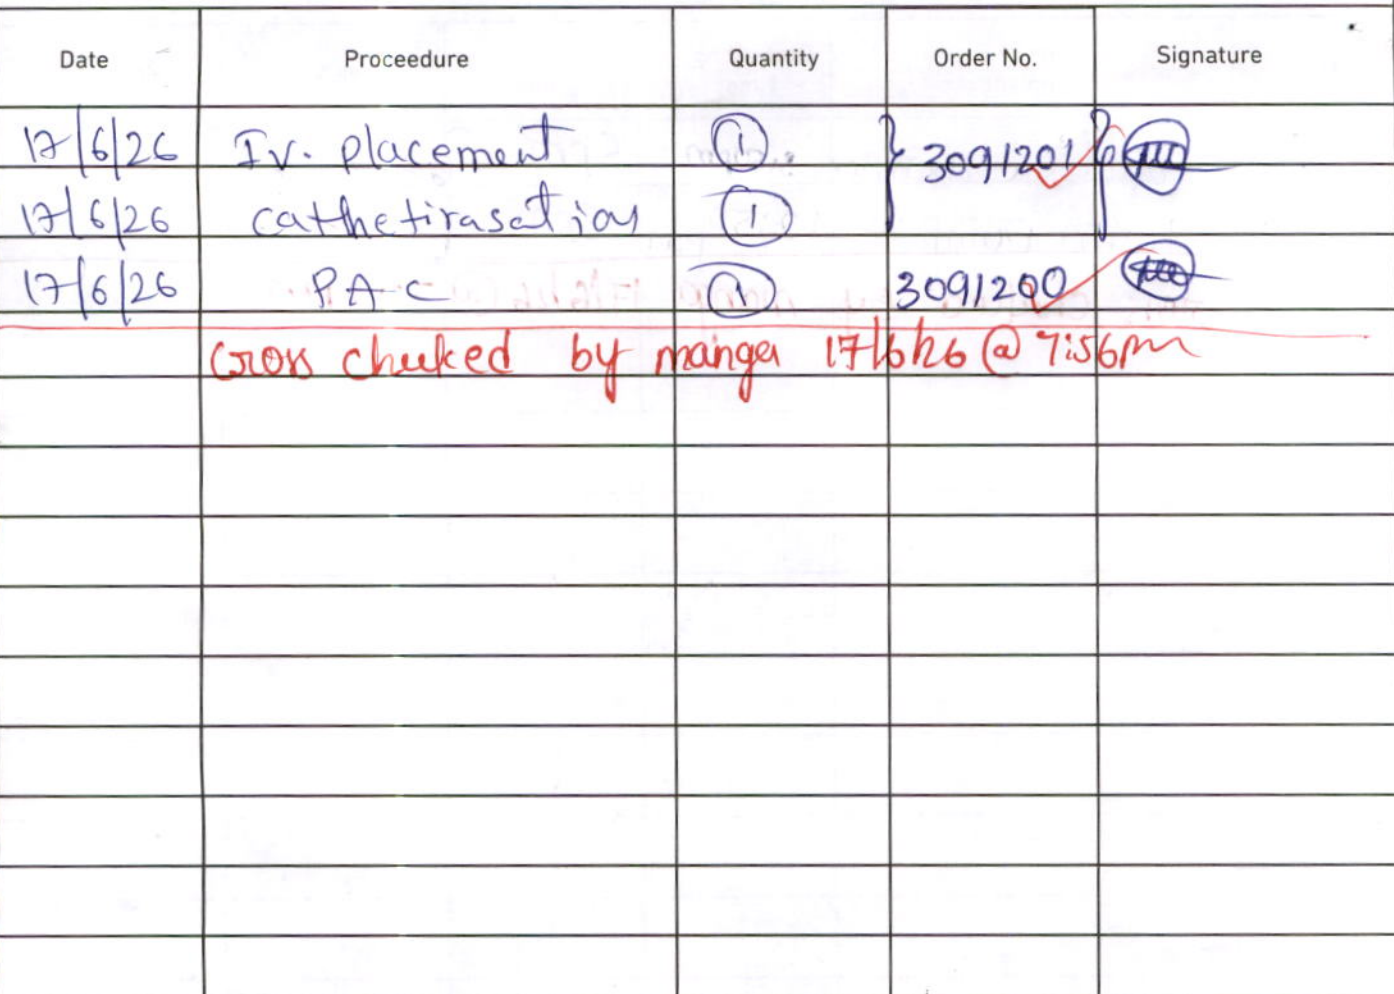 Date Proceedure Quantity Order No. Signature
17/6/26 Iv. placement 1 3091201
17/6/26 cathetirasation 1
17/6/26 PAC 1 3091200
cross cheked by manga 17/6/26 @ 7:56pm